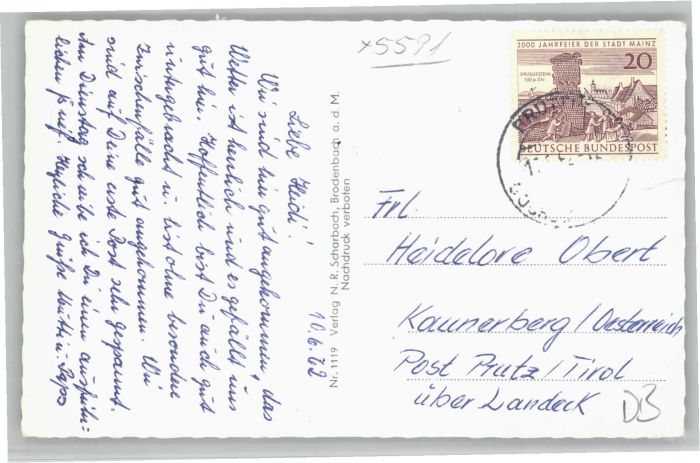 Liebe Heidi!
Wir sind hier gut angekommen, das
Wetter ist herrlich und es gefällt uns
gut hier. Hoffentlich bist Du auch gut
untergebracht u. bist ohne besondere
Zwischenfälle gut angekommen. Wir
sind auf Deine erste Post sehr gespannt.
Am Dienstag schreibe ich Dir einen ausführ-
lichen Brief. Herzliche Grüße Mutti u. Papa
10.6.62
Nr. 1119 Verlag N. R. Scharbach, Brodenbach a. d. M.
Nachdruck verboten
x5591
2000 JAHRFEIER DER STADT MAINZ
DRUSUSSTEIN
20
DEUTSCHE BUNDESPOST
Frl.
Heidelore Obert
Kaunerberg/Oesterreich
Post Prutz/Tirol
über Landeck
DB